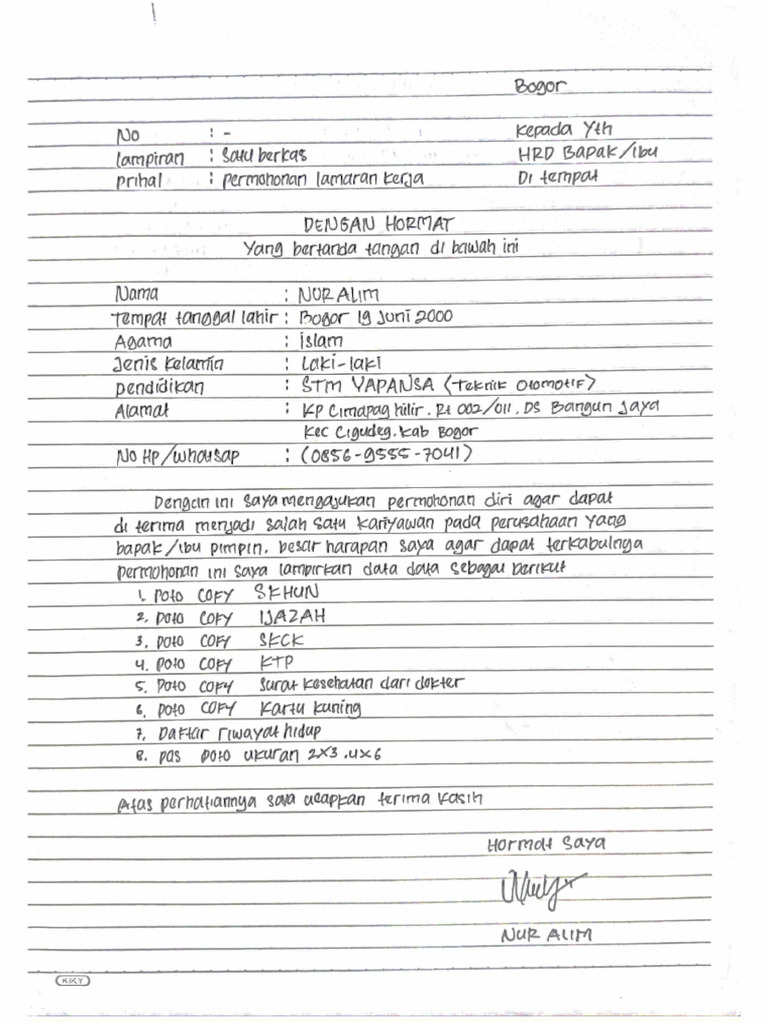 Bogor
No : - Kepada Yth
lampiran : satu berkas HRD Bapak/ibu
prihal : permohonan lamaran kerja Di tempat
DENGAN HORMAT
Yang bertanda tangan di bawah ini
Nama : NUR ALIM
Tempat tanggal lahir : Bogor 19 Juni 2000
Agama : islam
Jenis Kelamin : Laki-laki
pendidikan : STM YAPANSA (Teknik Otomotif)
Alamat : KP Cimapag hilir. Rt 002/011. DS Bangun Jaya
Kec Cigudeg. Kab Bogor
No HP/whatsap : (0856-9555-7041)
Dengan ini saya mengajukan permohonan diri agar dapat
di terima menjadi salah satu kariyawan pada perusahaan yang
bapak/ibu pimpin. besar harapan saya agar dapat terkabulnya
permohonan ini saya lampirkan data data sebagai berikut
1. poto copy SKHUN
2. poto copy IJAZAH
3. poto copy SKCK
4. poto copy KTP
5. poto copy surat kesehatan dari dokter
6. poto copy Kartu kuning
7. Daftar riwayat hidup
8. pas poto ukuran 2x3 . 4x6
Atas perhatiannya saya ucapkan terima kasih
Hormat saya
NUR ALIM
KKY